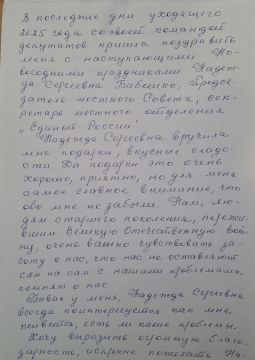 В последние дни уходящего
2025 года со своей командой
депутатов пришла поздравить
меня с наступающими Но-
вогодними праздниками Надеж-
да Сергеевна Бабешко, Предсе-
датель местного Совета, сек-
ретарь местного отделения
"Единой России".
Надежда Сергеевна вручила
мне подарки, вкусные сладо-
сти. Да подарки это очень
хорошо, приятно, но для меня
самое главное внимание, что
обо мне не забыли. Нам, лю-
дям старшего поколения, пережи-
вшим Великую Отечественную вой-
ну, очень важно чувствовать за-
боту о нас, что нас не оставляют
сам на сам с нашими проблемами,
помнят о нас.
Бывая у меня, Надежда Сергеевна
всегда поинтересуется как мне
живется, есть ли какие проблемы.
Хочу выразить огромную благо-
дарность, искренне пожелать На-